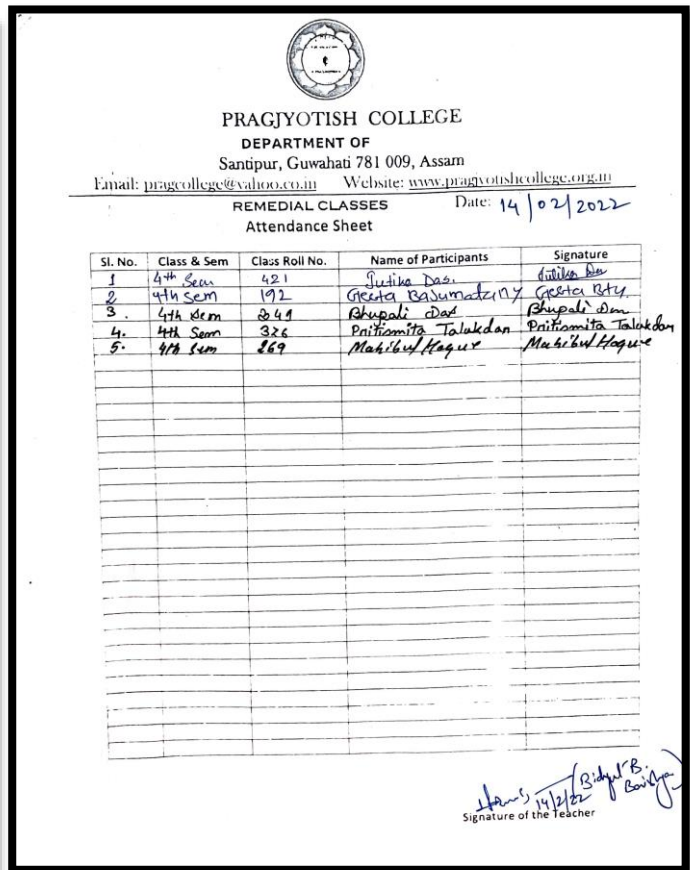 PRAGJYOTISH COLLEGE
DEPARTMENT OF
Santipur, Guwahati 781 009, Assam
Email: pragcollege@yahoo.co.in Website: www.pragjyotishcollege.org.in
REMEDIAL CLASSES Date: 14/02/2022
Attendance Sheet
Sl. No. Class & Sem Class Roll No. Name of Participants Signature
1 4th Sem 421 Jutika Das.
2 4th Sem 192 Geeta Basumatary Geeta Bty
3. 4th Sem 241 Bhupali Das Bhupali Das
4. 4th Sem 326 Pritismita Talukdar Pritismita Talukdar
5. 4th Sem 269 Mahibul Hoque Mahibul Hoque
(Bidyut B.
14/2/22 Baishya)
Signature of the Teacher